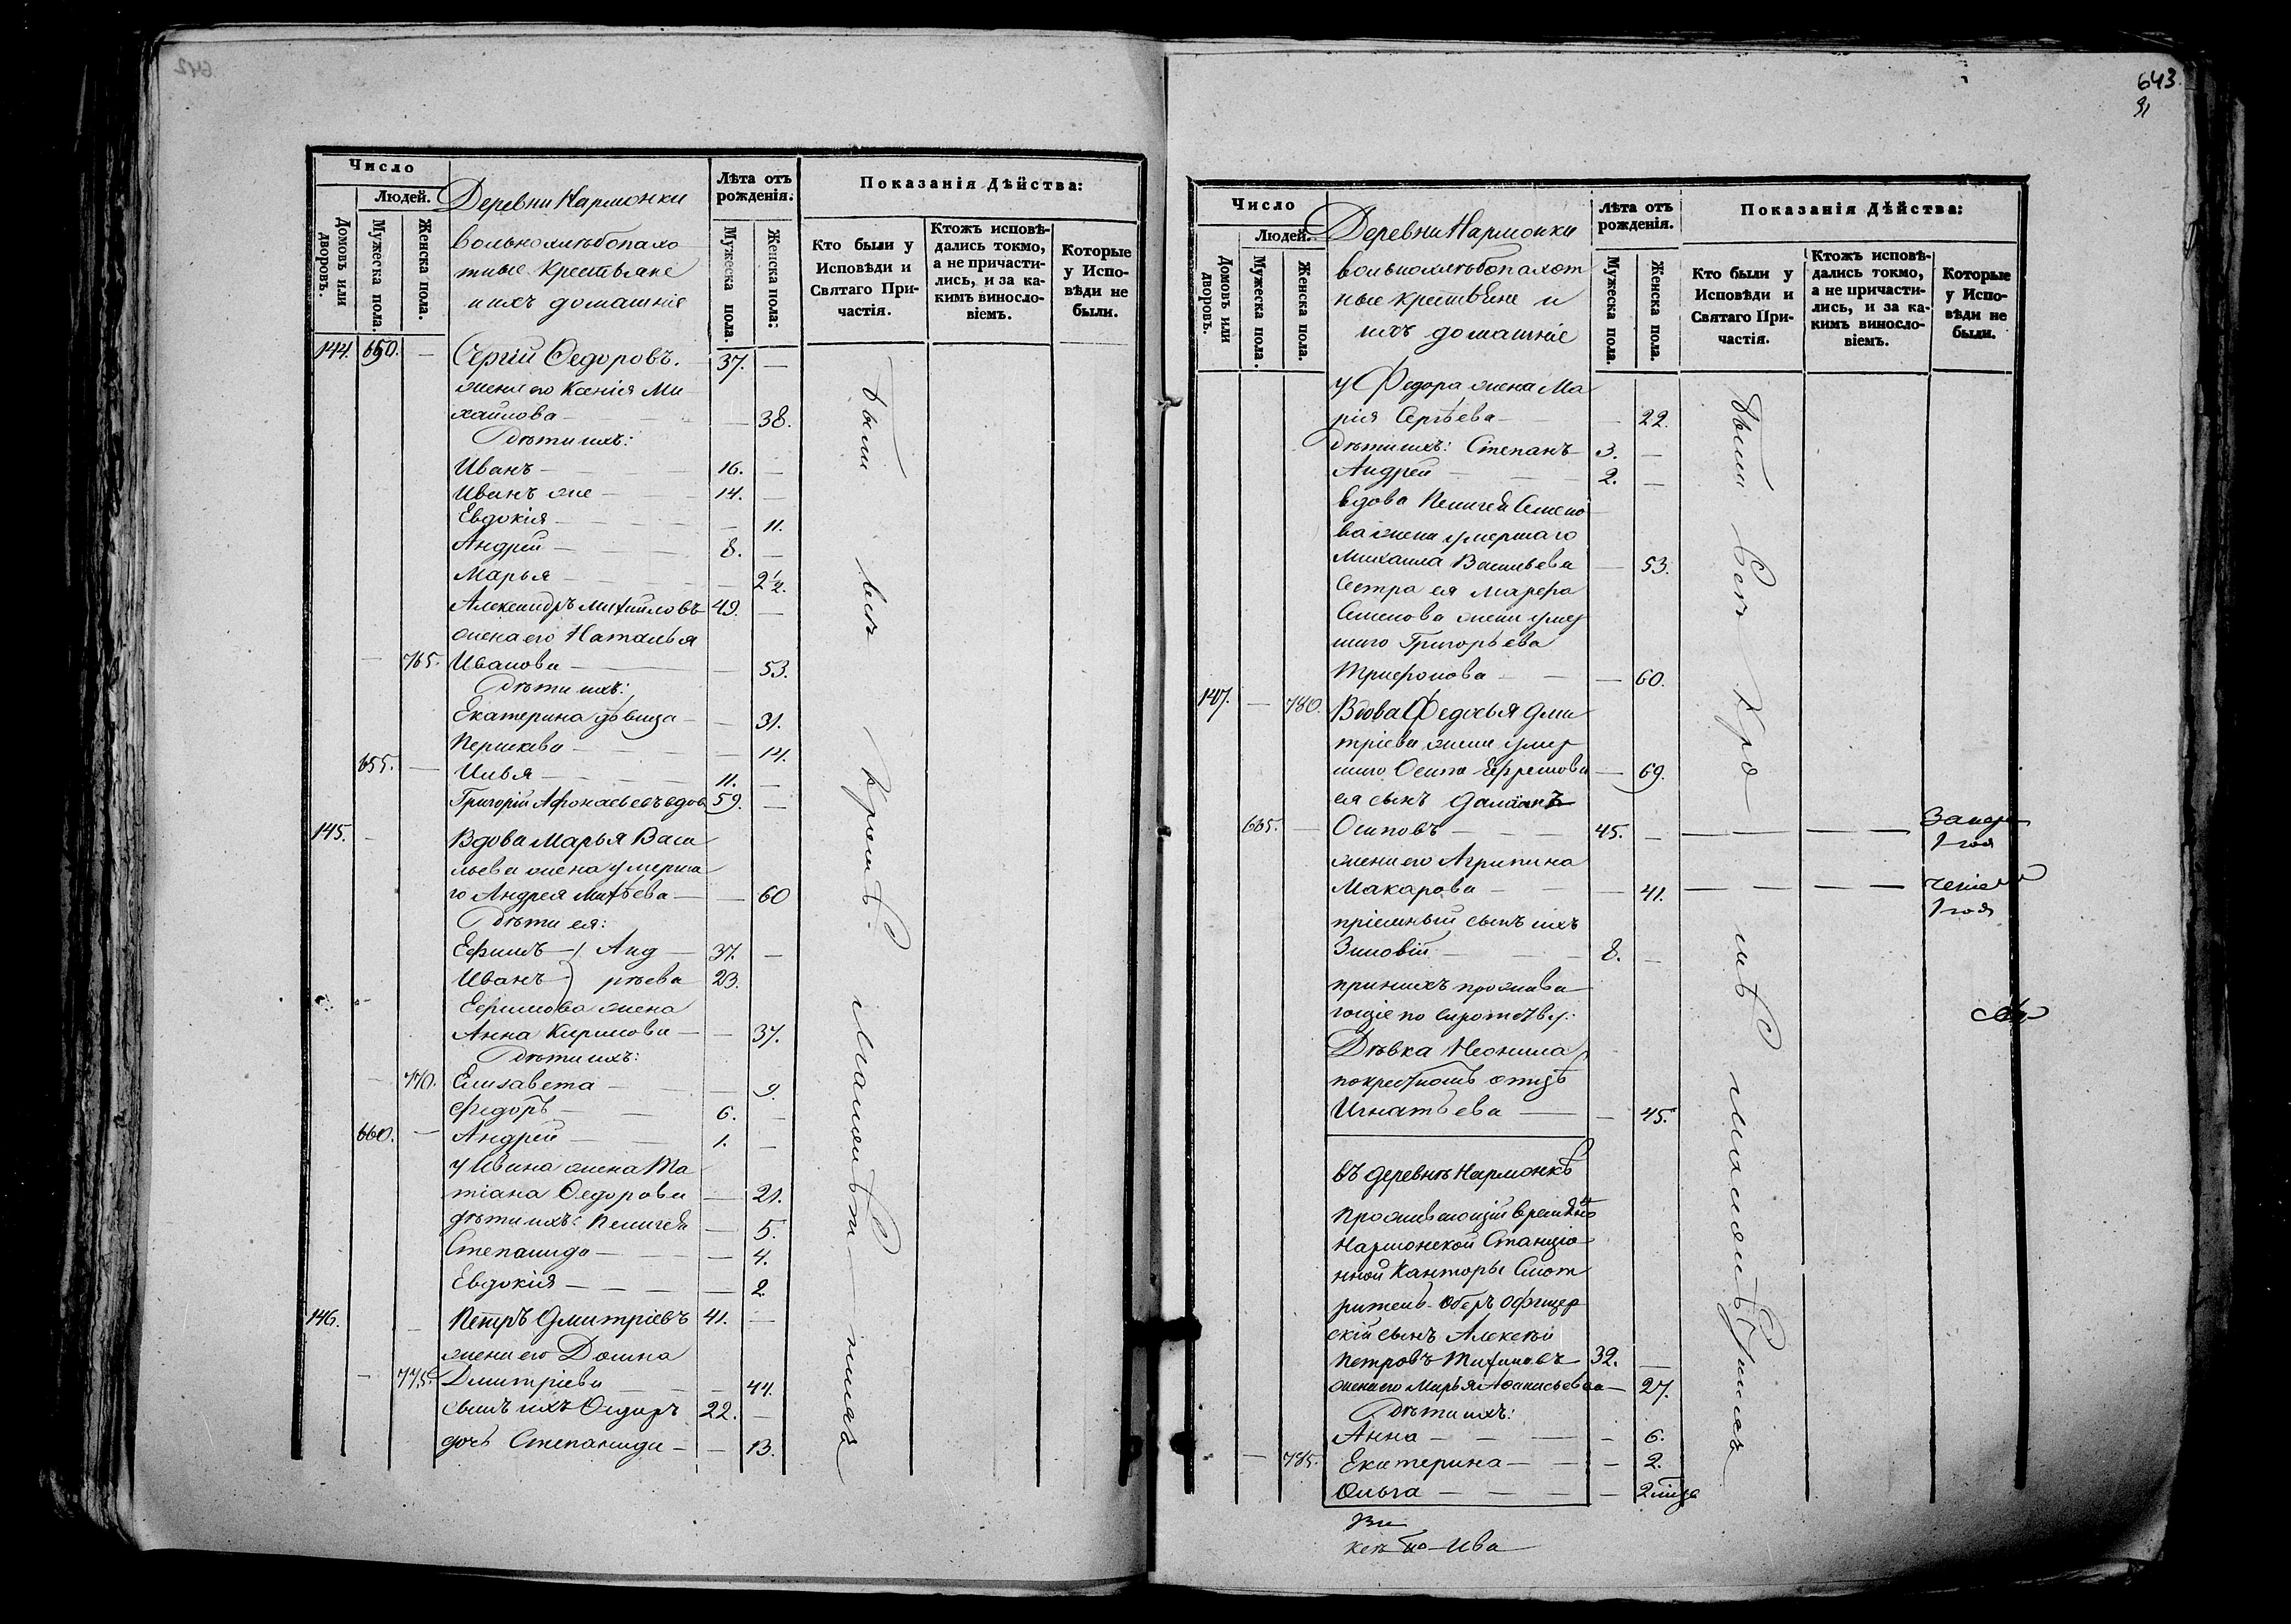 642
Число
Людей.
Домовъ или дворовъ.
Мужеска пола.
Женска пола.
Деревни Нармонки
вольнохлѣбопахо
тные крестьяне
и ихъ домашніе
Лѣта отъ рожденія.
Мужеска пола.
Женска пола.
Показанія Дѣйства:
Кто были у Исповѣди и Святаго Причастія.
Ктожъ исповѣдались токмо, а не причастились, и за какимъ винословіемъ.
Которые у Исповѣди не были.
144. 650. — Сергій Ѳедоровъ. 37. —
жена его Ксенія Ми
хайлова — — 38.
Дѣти ихъ:
Иванъ — 16. —
Иванъ же — 14. —
Евдокія — — 11.
Андрей — 8. —
Марья — — 2½.
Александръ Михайловъ 49. —
жена его Наталья
— 765. Иванова — — 53.
Дѣти ихъ:
Екатерина дѣвица — — 31.
Перасква — — 14.
655. — Илья — 11. —
Григорій Афонасьевъ вдов 59. —
145. — Вдова Марья Васи
льева жена умерша
го Андрея Матѳева — — 60
Дѣти ея:
Ефимъ — } Анд — 37. —
Иванъ — } рѣева 23.
Ефимова жена
Анна Киримова — — 37.
Дѣти ихъ:
— 770. Елизавета — — 9.
Федоръ — 6. —
660. — Андрей — 1. —
у Ивана жена Та
тіана Ѳедорова — 21.
дѣти ихъ: Пелагея — 5.
Степанида — — 4.
Евдокія — — 2
146. — Петръ Дмитріевъ 41. —
жена его Домна
— 775. Дмитріева — — 44.
сынъ ихъ Ѳедоръ 22. —
дочь Степанида — — 13.
были всѣ кромѣ малолѣтнихъ
643
91
Число
Людей.
Домовъ или дворовъ.
Мужеска пола.
Женска пола.
Деревни Нармонки
вольнохлѣбопахот
ные крестьяне и
ихъ домашніе
Лѣта отъ рожденія.
Мужеска пола.
Женска пола.
Показанія Дѣйства:
Кто были у Исповѣди и Святаго Причастія.
Ктожъ исповѣдались токмо, а не причастились, и за какимъ винословіемъ.
Которые у Исповѣди не были.
у Федора жена Ма
рія Сергѣева — — 22.
дѣти ихъ: Степанъ 3. —
Андрей — 2. —
вдова Пелагея Семено
ва жена умершаго
Михаила Васильева — 53.
Сестра ея Марфа
Семенова жена умер
шаго Григорьева
Трифонова — — 60.
147. — 780. Вдова Федосья Дми
тріева жена умер
шаго Осипа Ефремова — 69.
ея сынъ Даміанъ
665. — Осиповъ — 45. —
жена его Агрипина
Макарова — — 41.
пріемный сынъ ихъ
Зиновій — 8. —
при нихъ прожива
ющіе по сиротству:
Дѣвка Неонила
по крестномъ отцѣ
Игнатьева — — 45.
въ деревнѣ Нармонкѣ
проживающій временно
Нармонской Станціо
нной Канторы Смот
ритель Оберъ Офицер
скій сынъ Алексѣй
Петровъ 32. —
жена его Марья Афанасьева — 27.
Дѣти ихъ:
Анна — — 6.
— 785. Екатерина — — 2.
Ольга — —
были всѣ кромѣ малолѣтнихъ